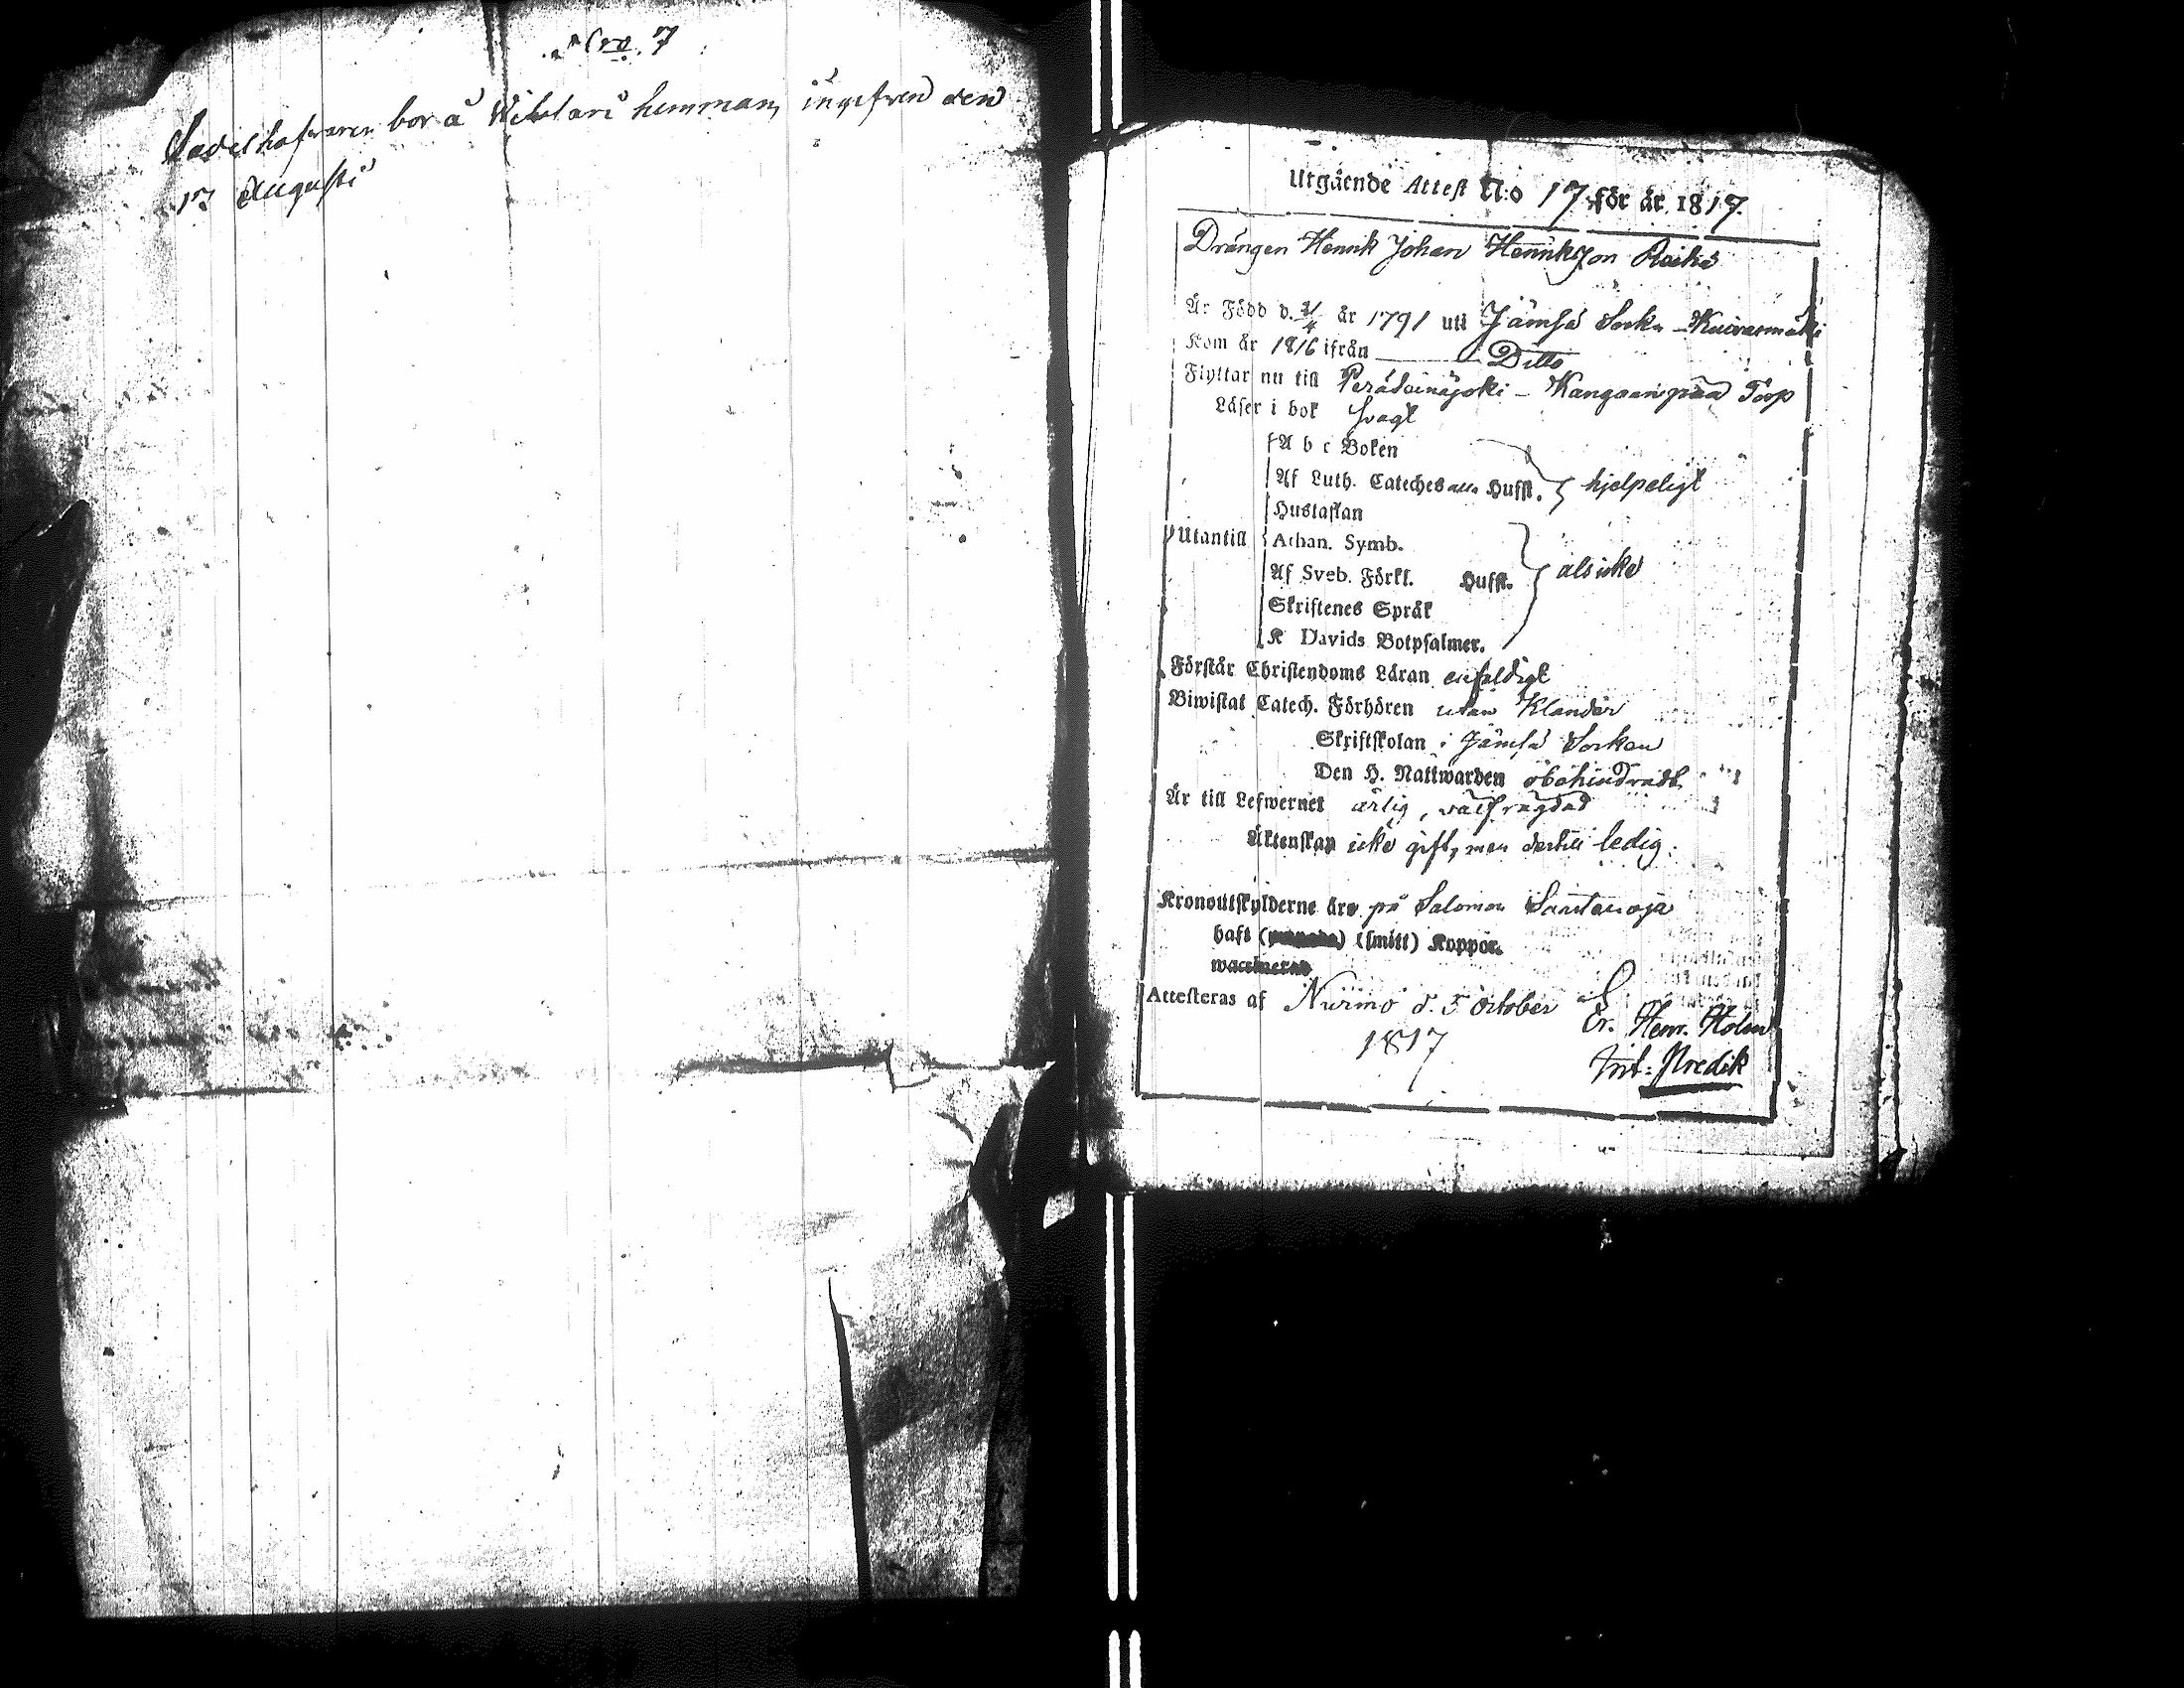 Nro 7
Sedelhafwaren bor å Wihlari hemman, ingifven den
17 Augusti
Utgående Attest N:o 17 för år 1817.
Drängen Henrik Johan Henriksson
Är Född d. 21/4 år 1791 uti Jämsä Sockn
Kom år 1816 ifrån Ditto
Flyttar nu till Peräseinäjoki - Kangaanpää Torp
Läser i bok svagt
A b c Boken
Af Luth. Cateches alla Hufst. } hjelpeligt
Hustaflan
Utantill { Athan. Symb.
Af Sveb. Förkl. Hufst. } als icke
Skriftenes Språk
K Davids Botpsalmer.
Förstår Christendoms Läran enfaldigt
Biwistat Catech. Förhören utan Klander
Skriftskolan i Jämsä Sockn
Den H. Nattwarden obehindradt
Är till Lefwernet ärlig, välfrägdad
Äktenskap icke gift, men dertill ledig.
Kronoutskylderne äro på Salomon
haft (smitt) Koppor.
waccinerad
Attesteras af Nurmo d. 5 October
1817
Er. Henr. Holm